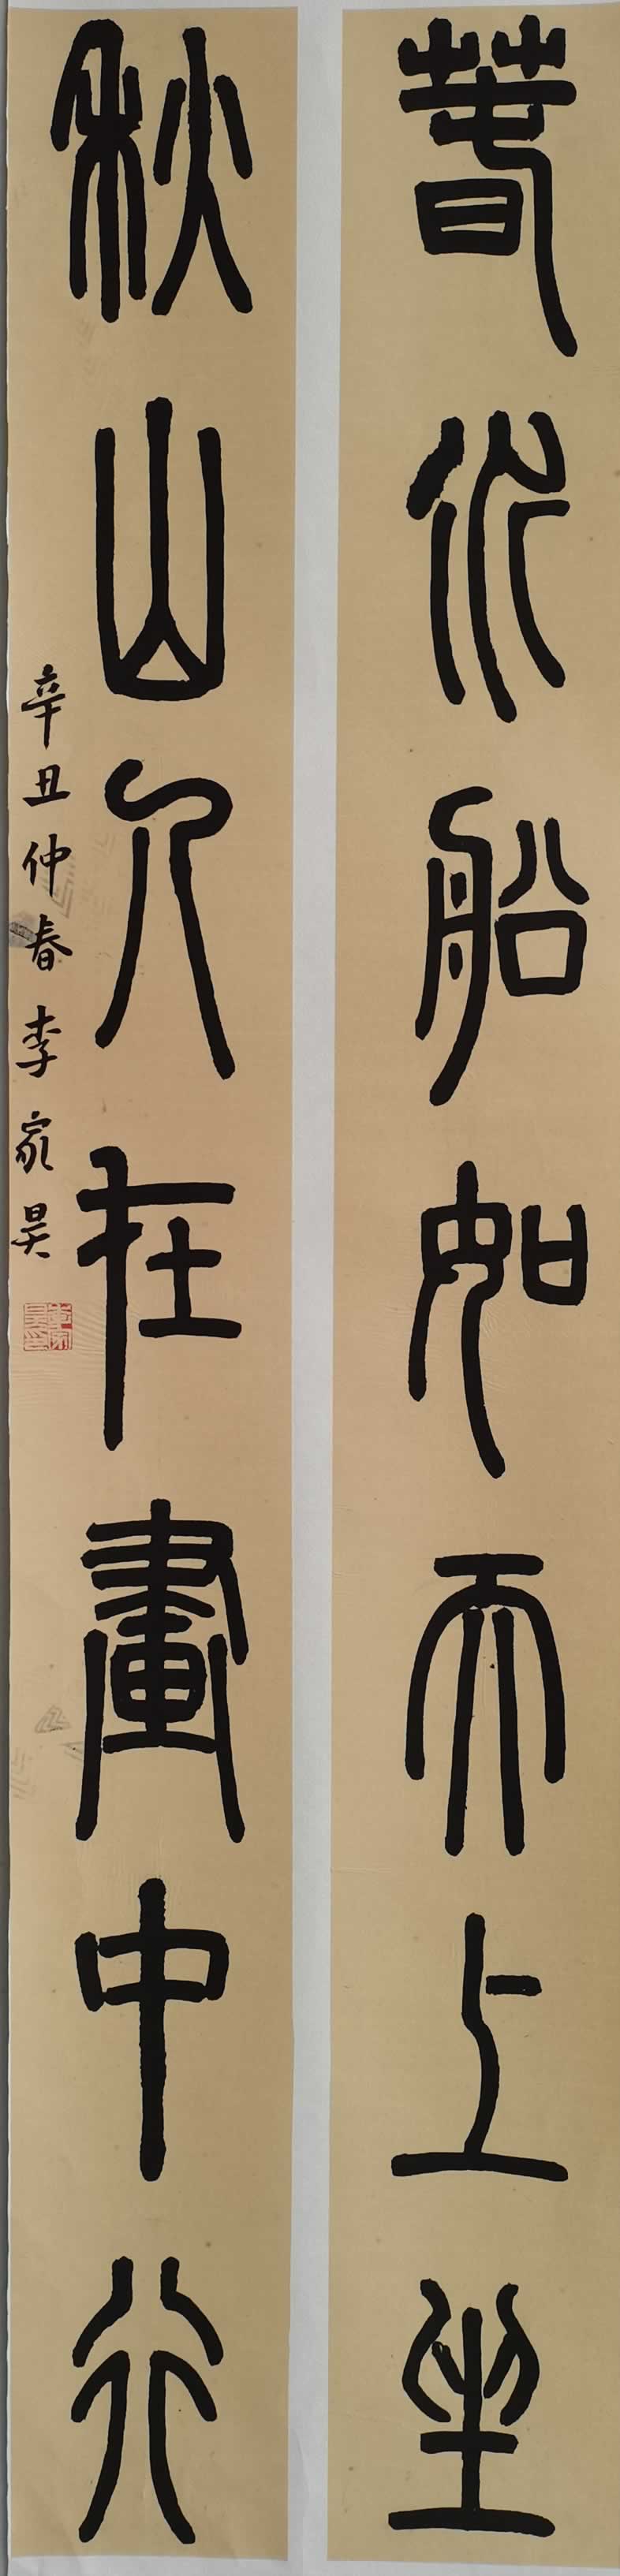 萅水船如天上坐
秋山人在畫中行
辛丑仲春李家昊
李家昊印